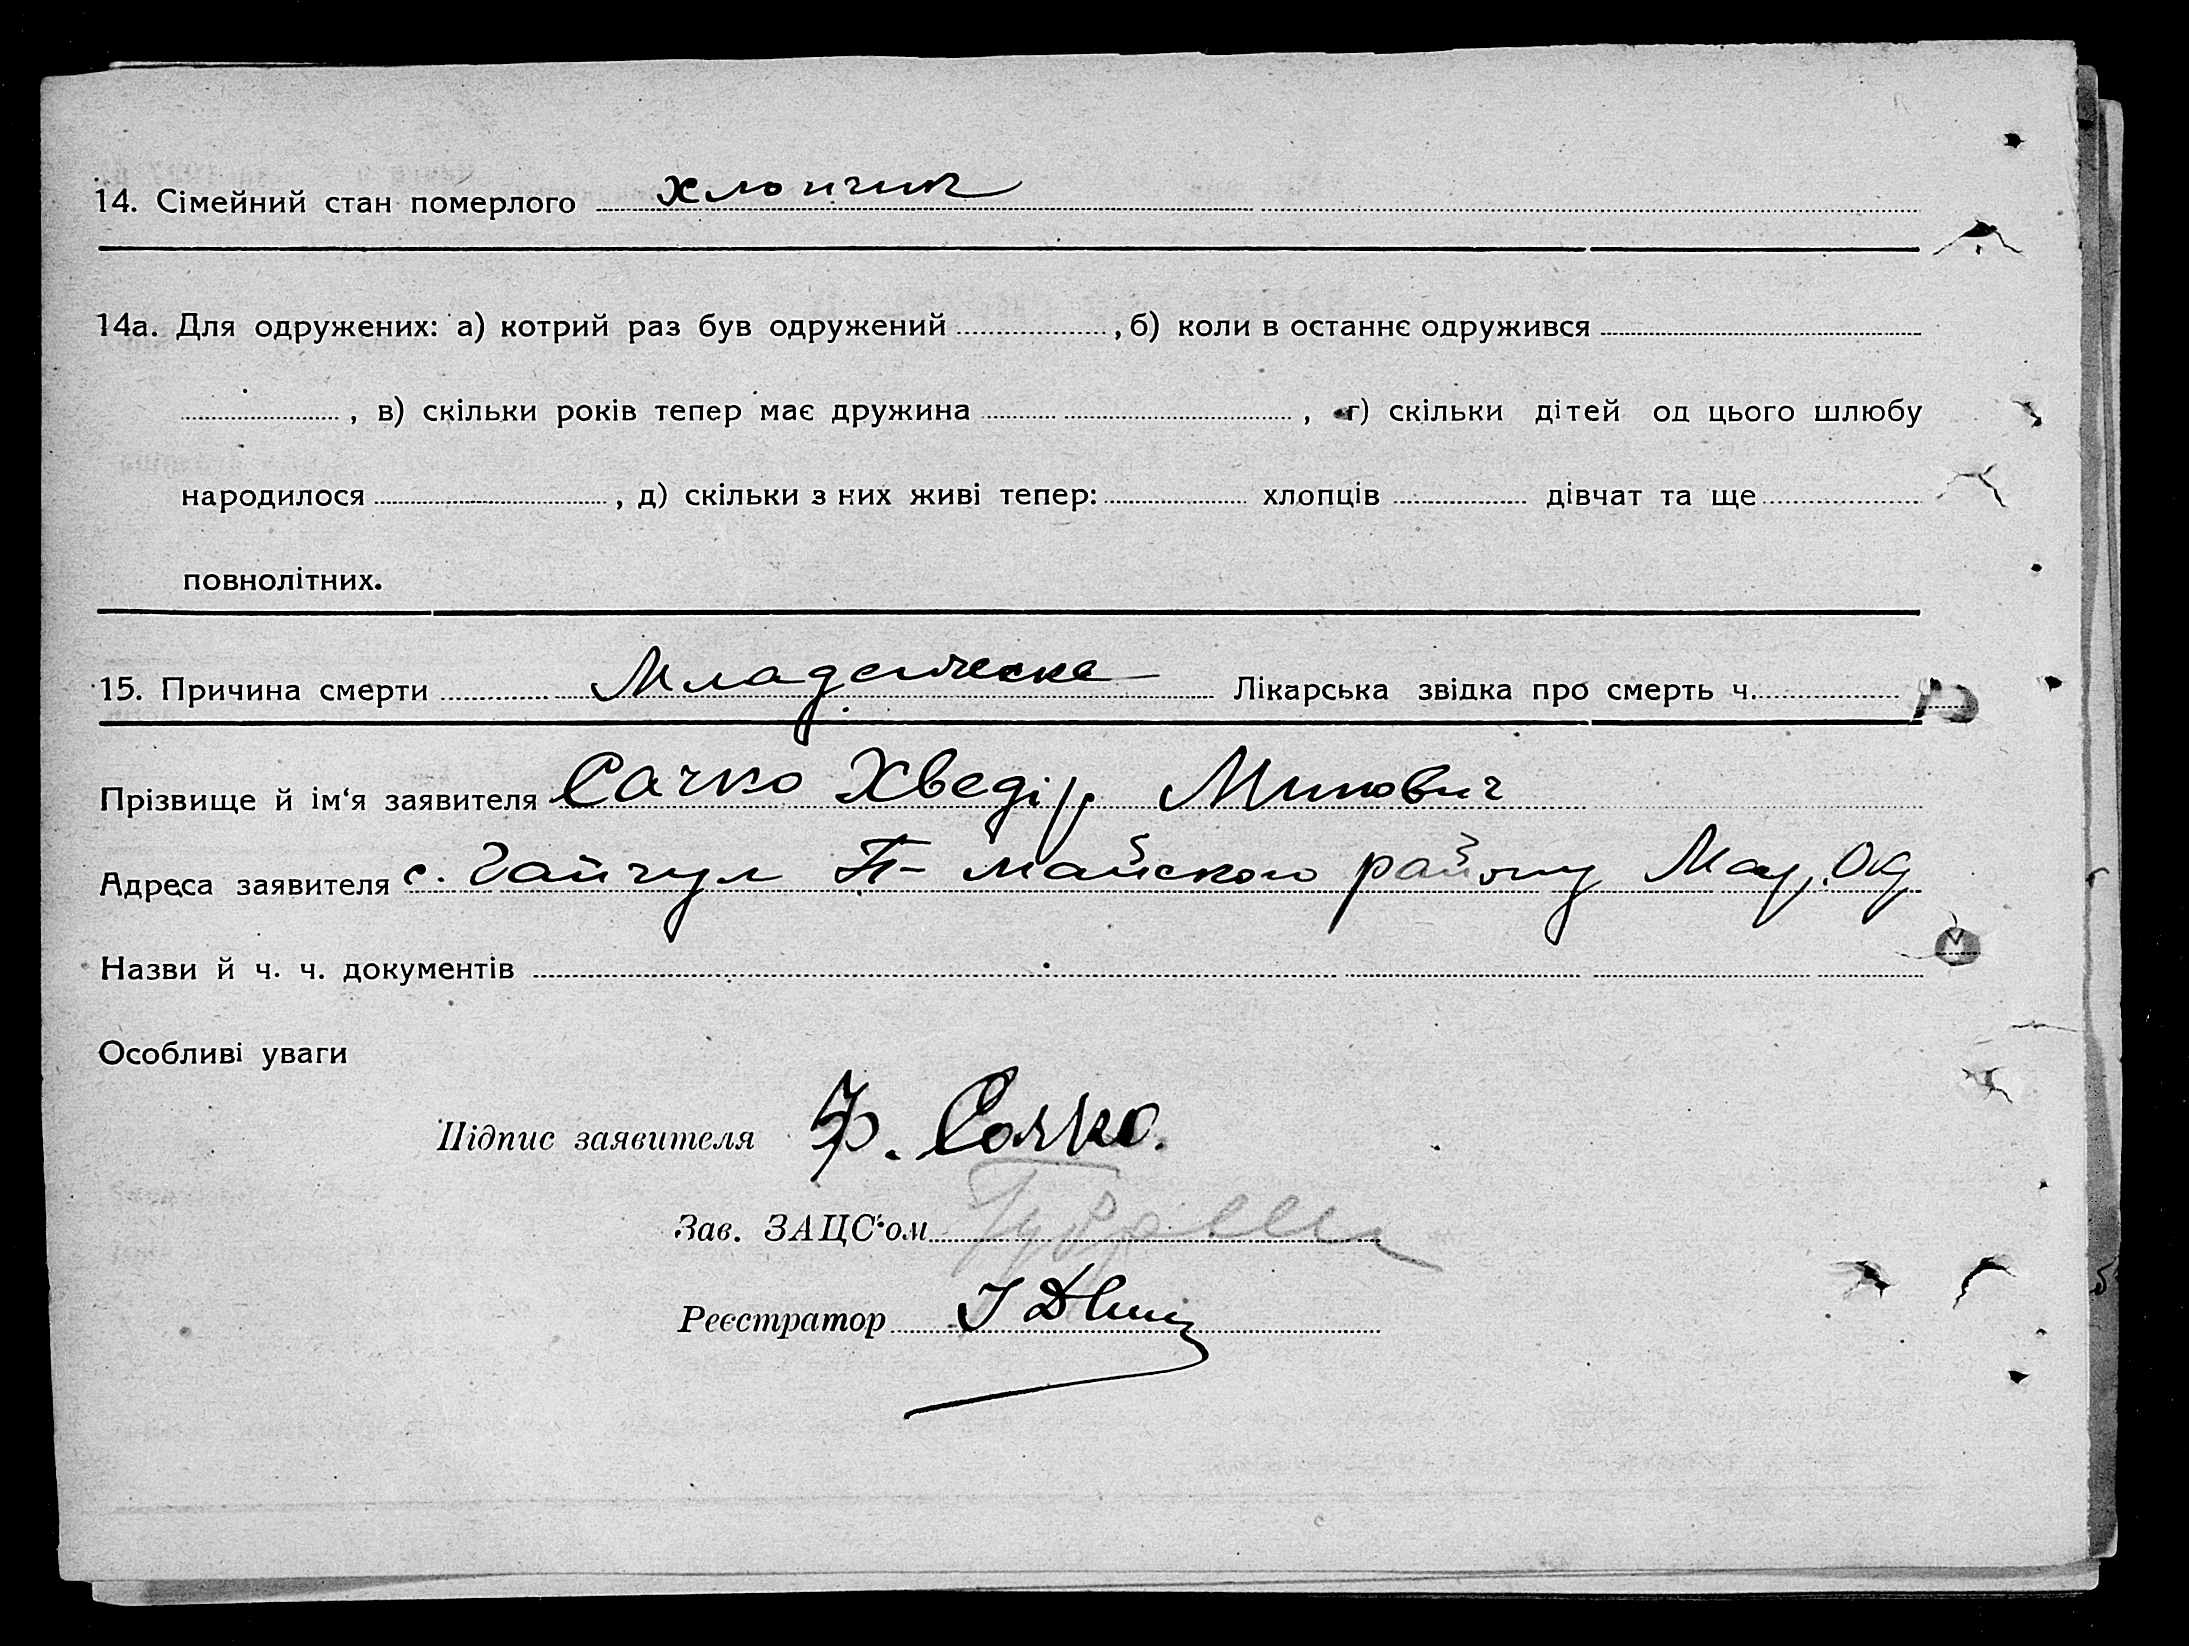 14. Сімейний стан померлого хлопчик
14а. Для одружених: а) котрий раз був одружений , б) коли в останнє одружився
, в) скільки років тепер має дружина , г) скільки дітей од цього шлюбу
народилося , д) скільки з них живі тепер: хлопців дівчат та ще
повнолітних.
15. Причина смерти Младенческа Лікарська звідка про смерть ч.
Прізвище й ім'я заявителя Сачко Хведір Минович
Адреса заявителя с. Гайчул П-майского району Мау, Ок
Назви й ч. ч. документів
Особливі уваги
Підпис заявителя Ф. Сачко.
Зав. ЗАЦС'ом
Реєстратор